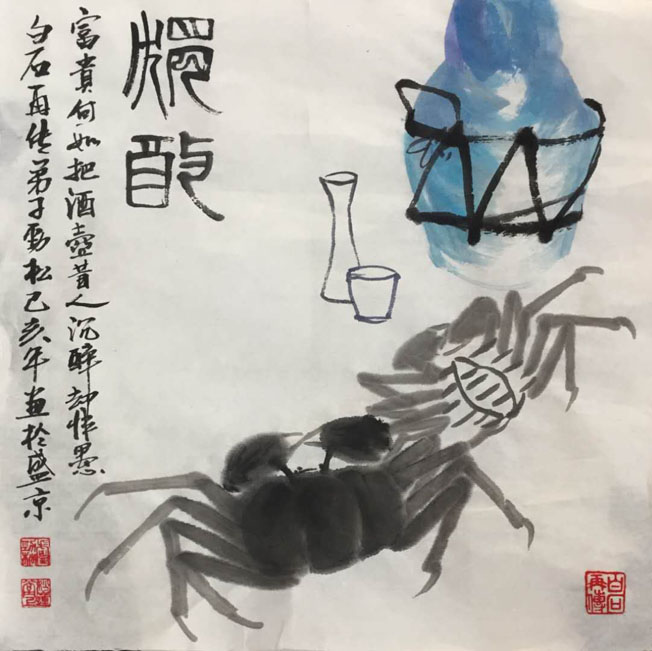 獨酌
富貴何如把酒壺昔人沉醉却愚
白石再传弟子勁松己亥年画於盛京
白石再傳